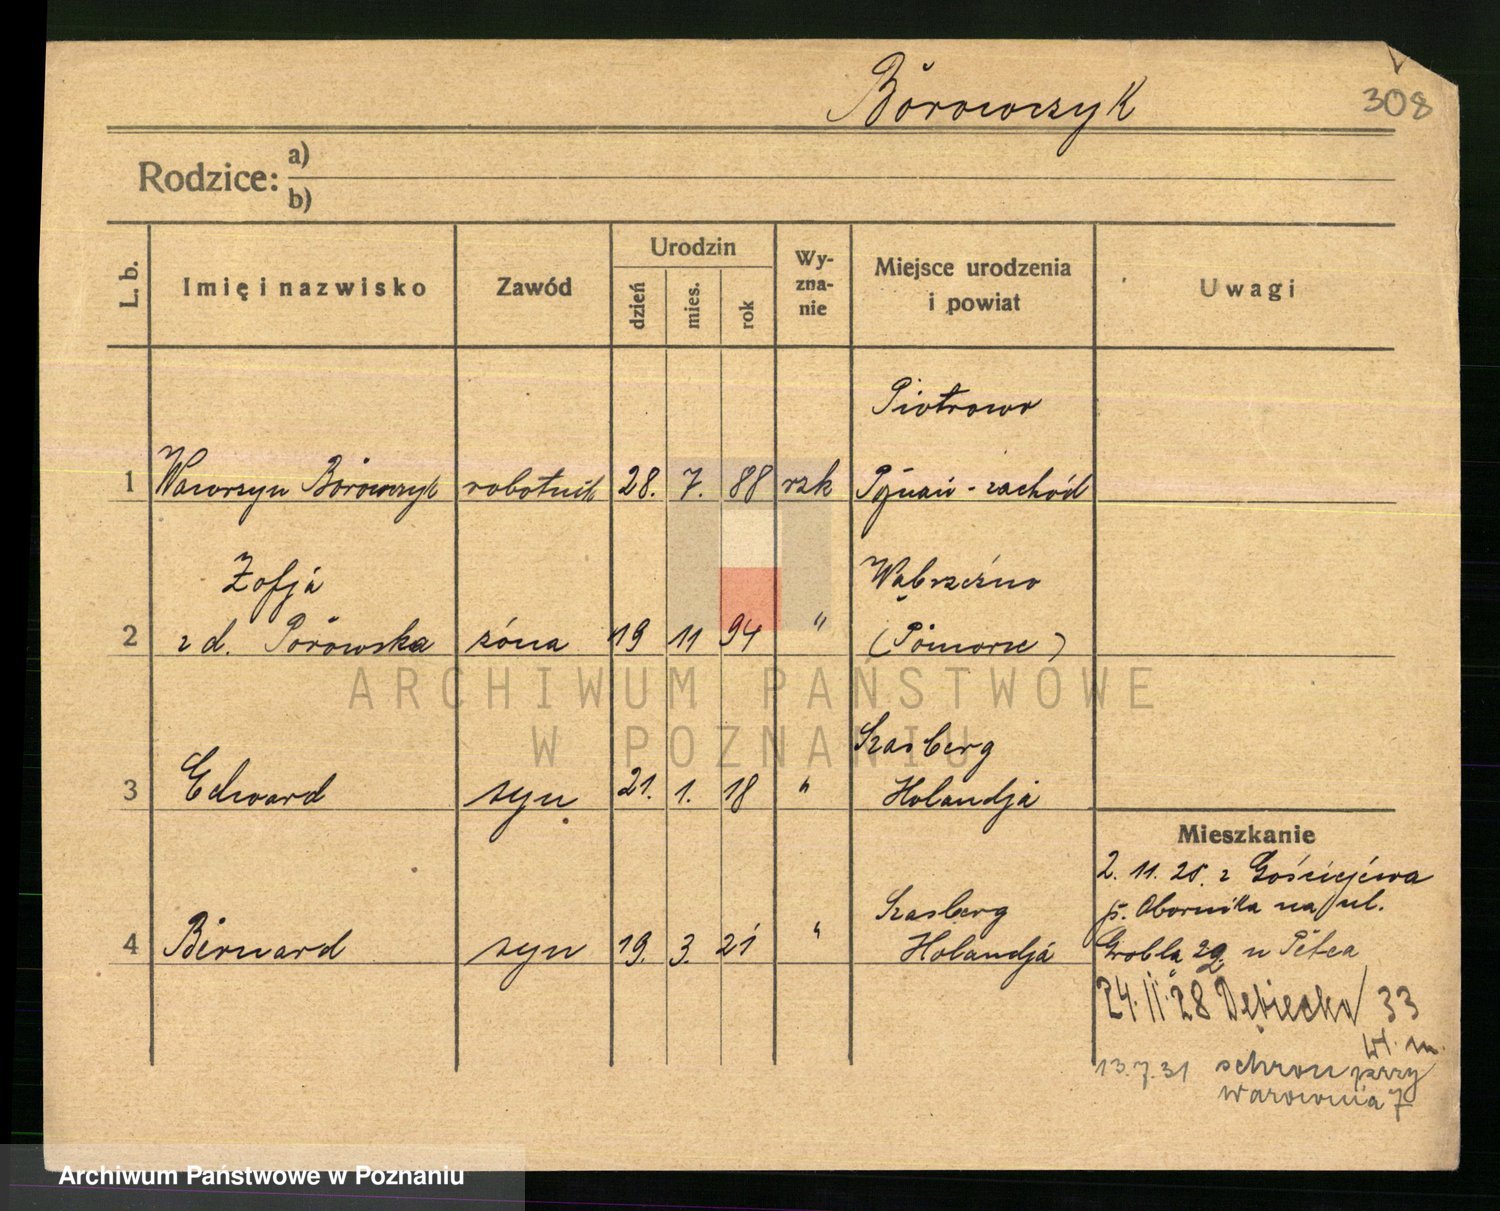 Borowczyk
308
Rodzice: a)
b)
L. b. Imię i nazwisko Zawód Urodzin dzień mies. rok Wy-zna-nie Miejsce urodzenia i powiat Uwagi
Piotrowo
1 Wawrzyn Borowczyk robotnik 28. 7. 88 rzk Poznań - zachód
Zofja Wąbrzeźno
2 z d. Porowska żona 19 11 94 " (Pomorze)
Szasberg
3 Edward syn 21. 1. 18 " Holandja
Mieszkanie
2. 11. 25. z Gościejewa
Szasberg p. Obornika na ul.
4 Bernard syn 19. 3. 21 " Holandja Grobla 29. u Petea
24.II.28 Dębiecka 33
wł. m.
13.7.31 schron przy
warownia 7
ARCHIWUM PAŃSTWOWE
W POZNANIU
Archiwum Państwowe w Poznaniu